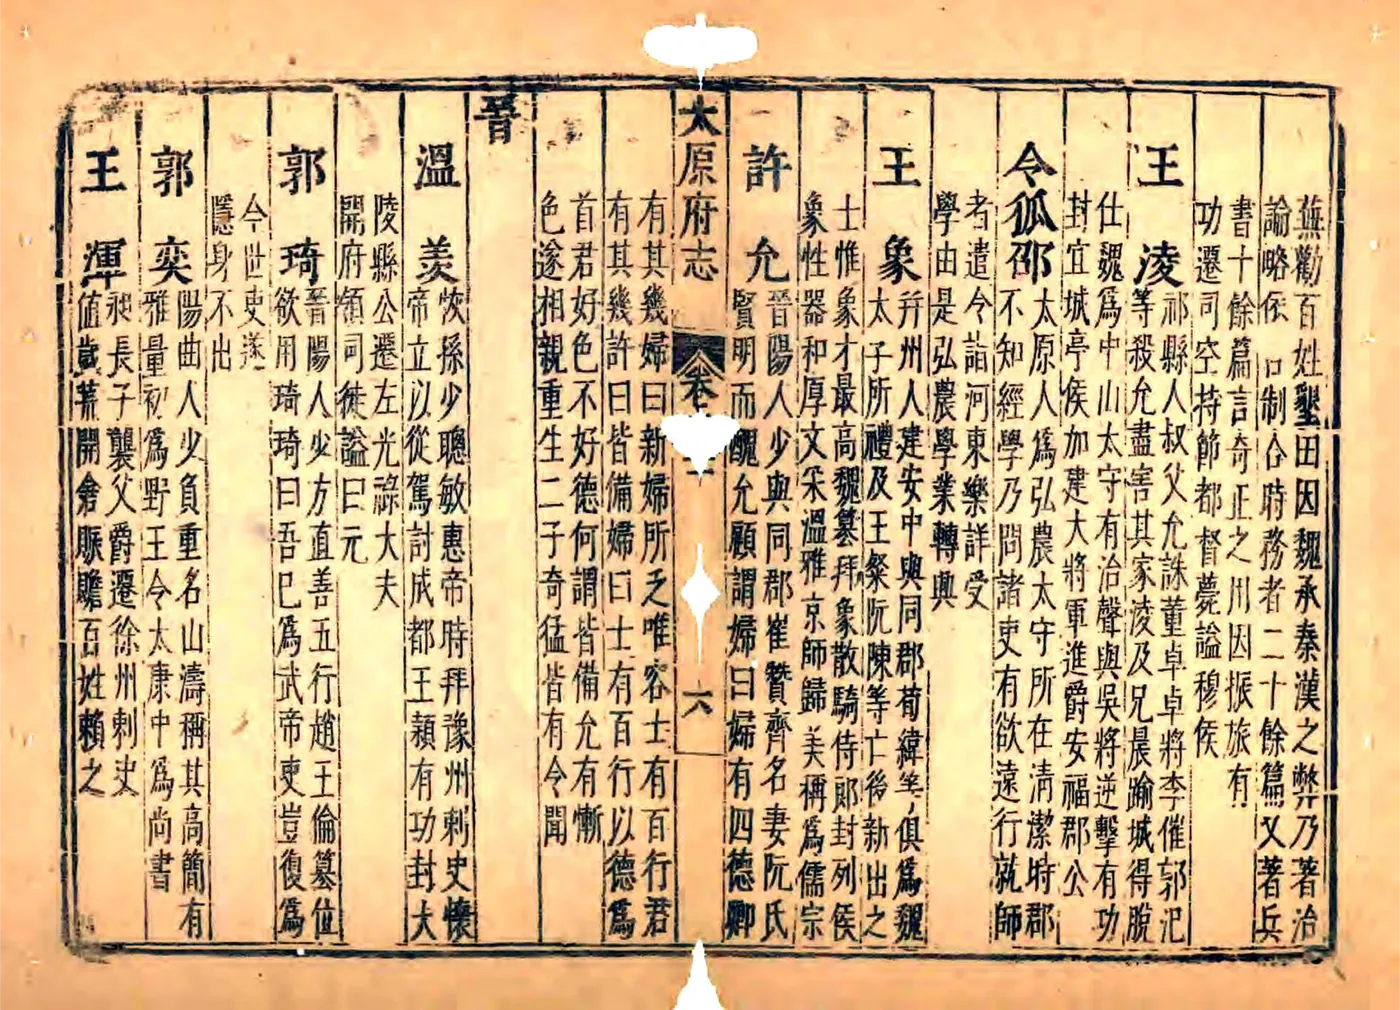 蕪勸百姓墾田因魏承秦漢之弊乃著治
論略依 制合時務者二十餘篇又著兵
書十餘篇言奇正之用因振旅有
功遷司空持節都督薨謚穆侯
王淩祁縣人叔父允誅董卓卓將李傕郭汜
等殺允盡害其家淩及兄晨踰城得脫
仕魏爲中山太守有治聲與吳將逆擊有功
封宜城亭侯加建大將軍進爵安福郡公
令狐邵太原人爲弘農太守所在清潔時郡
不知經學乃問諸吏有欲遠行就師
者遣令詣河東樂詳受
學由是弘農學業轉興
王象并州人建安中與同郡荀緯等俱爲魏
太子所禮及王粲阮陳等亡後新出之
士惟象才最高魏簒拜象散騎侍郎封列侯
象性器和厚文采溫雅京師歸美稱爲儒宗
許允晉陽人少與同郡崔贊齊名妻阮氏
賢明而醜允顧謂婦曰婦有四德卿
太原府志
卷
六
有其幾婦曰新婦所乏唯容士有百行君
有其幾許曰皆備婦曰士有百行以德爲
首君好色不好德何謂皆備允有慚
色遂相親重生二子奇猛皆有令聞
晉
溫羨恢孫少聰敏惠帝時拜豫州刺史懷
帝立以從駕討成都王穎有功封大
陵縣公遷左光祿大夫
開府領司徒謚曰元
郭琦晉陽人少方直善五行趙王倫簒位
欲用琦琦曰吾已爲武帝吏豈復爲
今世吏遂
隱身不出
郭奕陽曲人少負重名山濤稱其高簡有
雅量初爲野王令太康中爲尚書
王渾昶長子襲父爵遷徐州刺史
值歲荒開倉賑贍百姓賴之